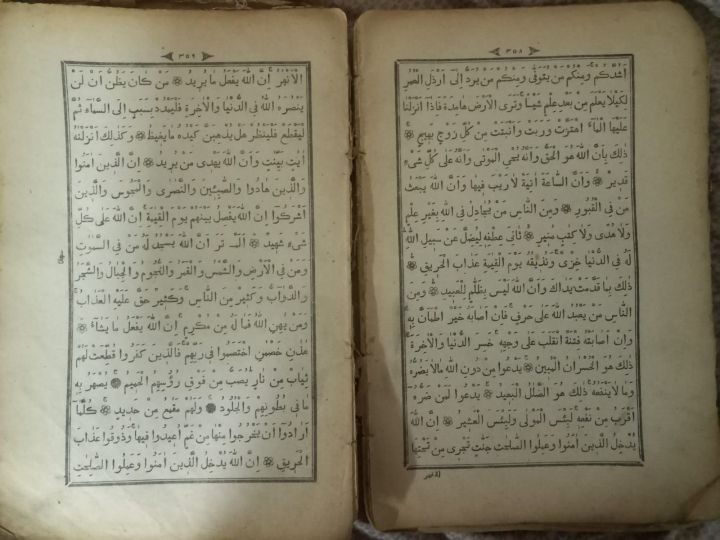 ٣٥٨
اَشُدَّكُمْ وَمِنْكُمْ مَنْ يُتَوَفّٰى وَمِنْكُمْ مَنْ يُرَدُّ اِلٰٓى اَرْذَلِ الْعُمُرِ
لِكَيْلَا يَعْلَمَ مِنْ بَعْدِ عِلْمٍ شَيْـًٔا وَتَرَى الْاَرْضَ هَامِدَةً فَاِذَآ اَنْزَلْنَا
عَلَيْهَا الْمَآءَ اهْتَزَّتْ وَرَبَتْ وَاَنْبَتَتْ مِنْ كُلِّ زَوْجٍ بَهِيجٍ
ذٰلِكَ بِاَنَّ اللّٰهَ هُوَ الْحَقُّ وَاَنَّهُ يُحْيِ الْمَوْتٰى وَاَنَّهُ عَلٰى كُلِّ شَىْءٍ
قَدِيرٌ وَاَنَّ السَّاعَةَ اٰتِيَةٌ لَا رَيْبَ فِيهَا وَاَنَّ اللّٰهَ يَبْعَثُ
مَنْ فِي الْقُبُورِ وَمِنَ النَّاسِ مَنْ يُجَادِلُ فِي اللّٰهِ بِغَيْرِ عِلْمٍ
وَلَا هُدًى وَلَا كِتٰبٍ مُنِيرٍ ثَانِيَ عِطْفِهِ لِيُضِلَّ عَنْ سَبِيلِ اللّٰهِ
لَهُ فِي الدُّنْيَا خِزْىٌ وَنُذِيقُهُ يَوْمَ الْقِيٰمَةِ عَذَابَ الْحَرِيقِ
ذٰلِكَ بِمَا قَدَّمَتْ يَدَاكَ وَاَنَّ اللّٰهَ لَيْسَ بِظَلَّامٍ لِلْعَبِيدِ وَمِنَ
النَّاسِ مَنْ يَعْبُدُ اللّٰهَ عَلٰى حَرْفٍ فَاِنْ اَصَابَهُ خَيْرٌ اطْمَاَنَّ بِهِ
وَاِنْ اَصَابَتْهُ فِتْنَةٌ انْقَلَبَ عَلٰى وَجْهِهِ خَسِرَ الدُّنْيَا وَالْاٰخِرَةَ
ذٰلِكَ هُوَ الْخُسْرَانُ الْمُبِينُ يَدْعُوا مِنْ دُونِ اللّٰهِ مَالَا يَضُرُّهُ
وَمَا لَا يَنْفَعُهُ ذٰلِكَ هُوَ الضَّلٰلُ الْبَعِيدُ يَدْعُوا لَمَنْ ضَرُّهُ
اَقْرَبُ مِنْ نَفْعِهِ لَبِئْسَ الْمَوْلٰى وَلَبِئْسَ الْعَشِيرُ اِنَّ اللّٰهَ
يُدْخِلُ الَّذِينَ اٰمَنُوا وَعَمِلُوا الصَّالِحَاتِ جَنَّاتٍ تَجْرِي مِنْ تَحْتِهَا
٣٥٩
الْاَنْهٰرُ اِنَّ اللّٰهَ يَفْعَلُ مَا يُرِيدُ مَنْ كَانَ يَظُنُّ اَنْ لَنْ
يَنْصُرَهُ اللّٰهُ فِي الدُّنْيَا وَالْاٰخِرَةِ فَلْيَمْدُدْ بِسَبَبٍ اِلَى السَّمَآءِ ثُمَّ
لْيَقْطَعْ فَلْيَنْظُرْ هَلْ يُذْهِبَنَّ كَيْدُهُ مَا يَغِيظُ وَكَذٰلِكَ اَنْزَلْنٰهُ
اٰيٰتٍ بَيِّنٰتٍ وَاَنَّ اللّٰهَ يَهْدِى مَنْ يُرِيدُ اِنَّ الَّذِينَ اٰمَنُوا
وَالَّذِينَ هَادُوا وَالصَّابِئِينَ وَالنَّصٰرٰى وَالْمَجُوسَ وَالَّذِينَ
اَشْرَكُوا اِنَّ اللّٰهَ يَفْصِلُ بَيْنَهُمْ يَوْمَ الْقِيٰمَةِ اِنَّ اللّٰهَ عَلٰى كُلِّ
شَىْءٍ شَهِيدٌ اَلَمْ تَرَ اَنَّ اللّٰهَ يَسْجُدُ لَهُ مَنْ فِي السَّمٰوٰتِ
وَمَنْ فِي الْاَرْضِ وَالشَّمْسُ وَالْقَمَرُ وَالنُّجُومُ وَالْجِبَالُ وَالشَّجَرُ
وَالدَّوَآبُّ وَكَثِيرٌ مِنَ النَّاسِ وَكَثِيرٌ حَقَّ عَلَيْهِ الْعَذَابُ
وَمَنْ يُهِنِ اللّٰهُ فَمَا لَهُ مِنْ مُكْرِمٍ اِنَّ اللّٰهَ يَفْعَلُ مَا يَشَآءُ
هٰذَانِ خَصْمٰنِ اخْتَصَمُوا فِي رَبِّهِمْ فَالَّذِينَ كَفَرُوا قُطِّعَتْ لَهُمْ
ثِيَابٌ مِنْ نَارٍ يُصَبُّ مِنْ فَوْقِ رُؤُسِهِمُ الْحَمِيمُ يُصْهَرُ بِهِ
مَا فِي بُطُونِهِمْ وَالْجُلُودُ وَلَهُمْ مَقَامِعُ مِنْ حَدِيدٍ كُلَّمَآ
اَرَادُوٓا اَنْ يَخْرُجُوا مِنْهَا مِنْ غَمٍّ اُعِيدُوا فِيهَا وَذُوقُوا عَذَابَ
الْحَرِيقِ اِنَّ اللّٰهَ يُدْخِلُ الَّذِينَ اٰمَنُوا وَعَمِلُوا الصَّالِحَاتِ